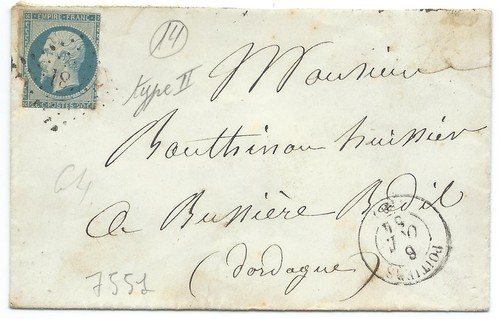 EMPIRE FRANC
POSTES
14
type II
Monsieur
Bouthinon huissier
a Bussière Badil
(Dordogne)
POITIERS
64
7551